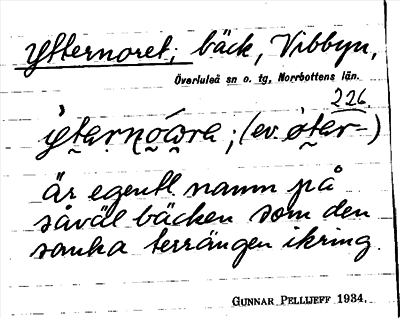 Ytternoret; bäck, Vibbyn,
Överluleå sn o. tg, Norrbottens län.
226.
(ev.
är egentl. namn på
såväl bäcken som den
sanka terrängen ikring.
GUNNAR PELLIJEFF 1934.